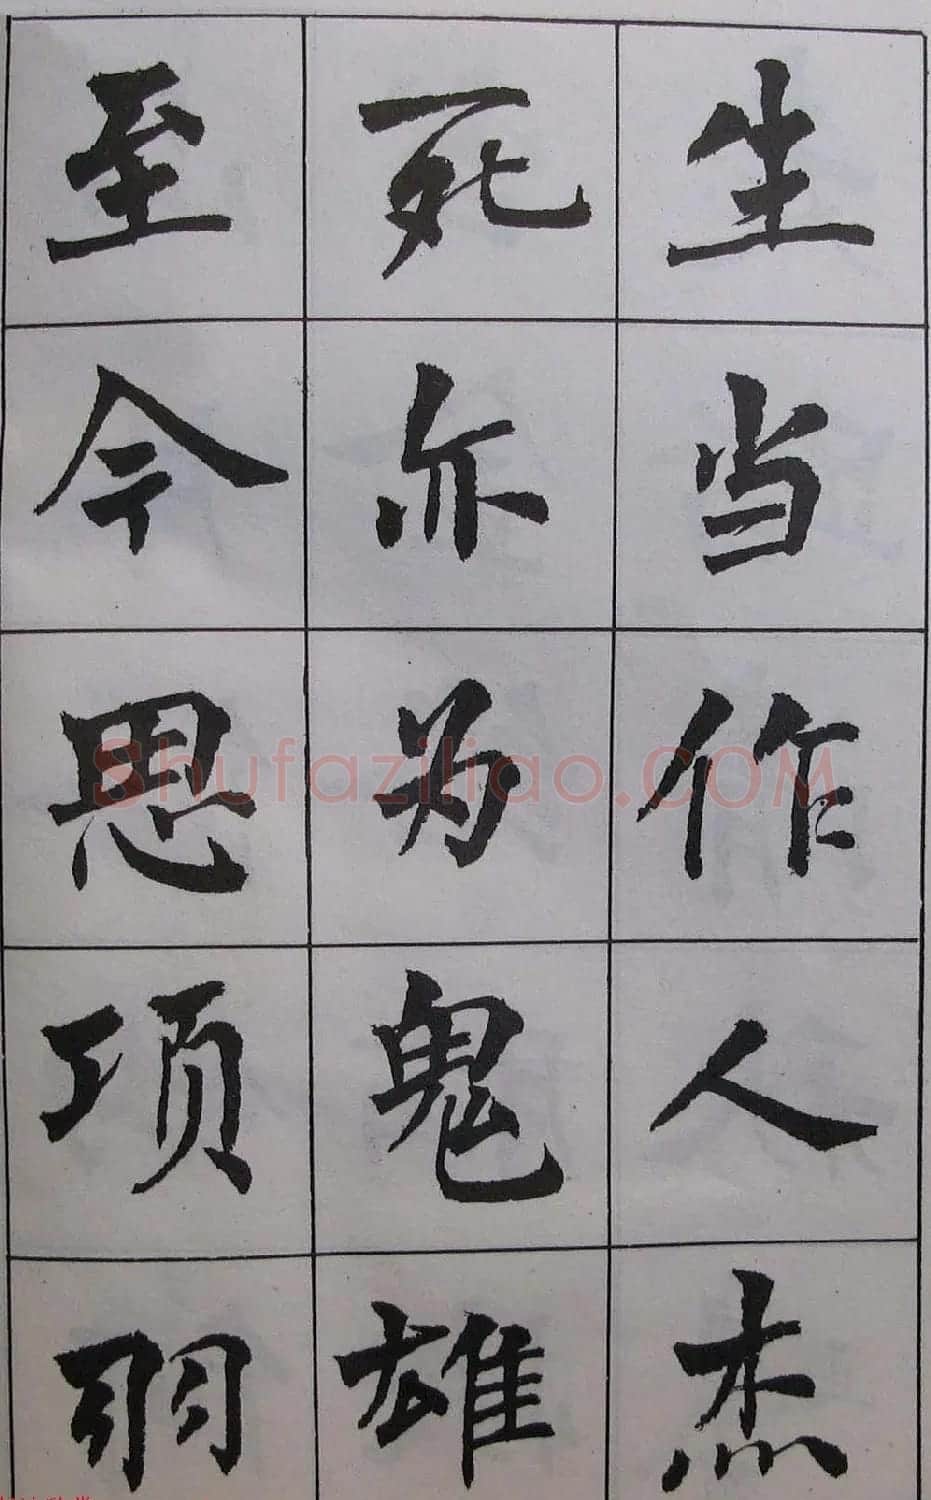 生当作人杰
死亦为鬼雄
至今思项羽
Shufaziliao.COM